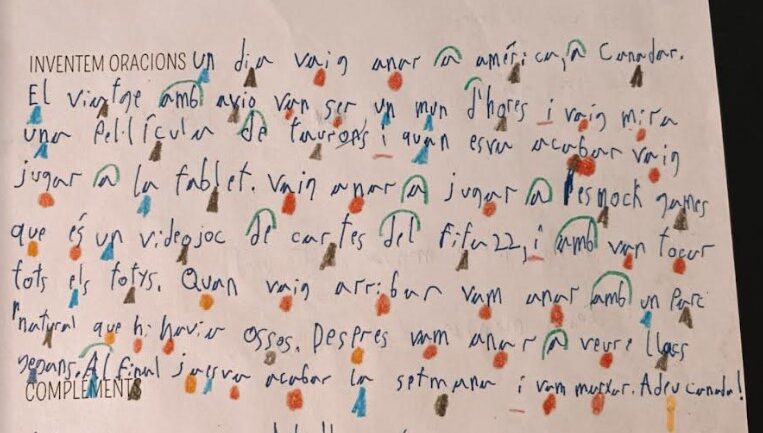 INVENTEM ORACIONS Un dia vaig anar a amèrica, a Canadar.
El viatge amb avio van ser un mun d'hores i vaig mira
una Pel·lícula de taurons i quan esva acabar vaig
jugar a la tablet. Vaig anar a jugar a Pesmock games
que és un videojoc de cartes del Fifa 22, i amb van tocar
tots els totys. Quan vaig arribar vam anar amb un Parc
natural que hi havia ossos. Despres vam anar a veure llacs
jegans. Al final jaesva acabar la setmana i vam marxar. Adeu Canada!
COMPLEMENTS